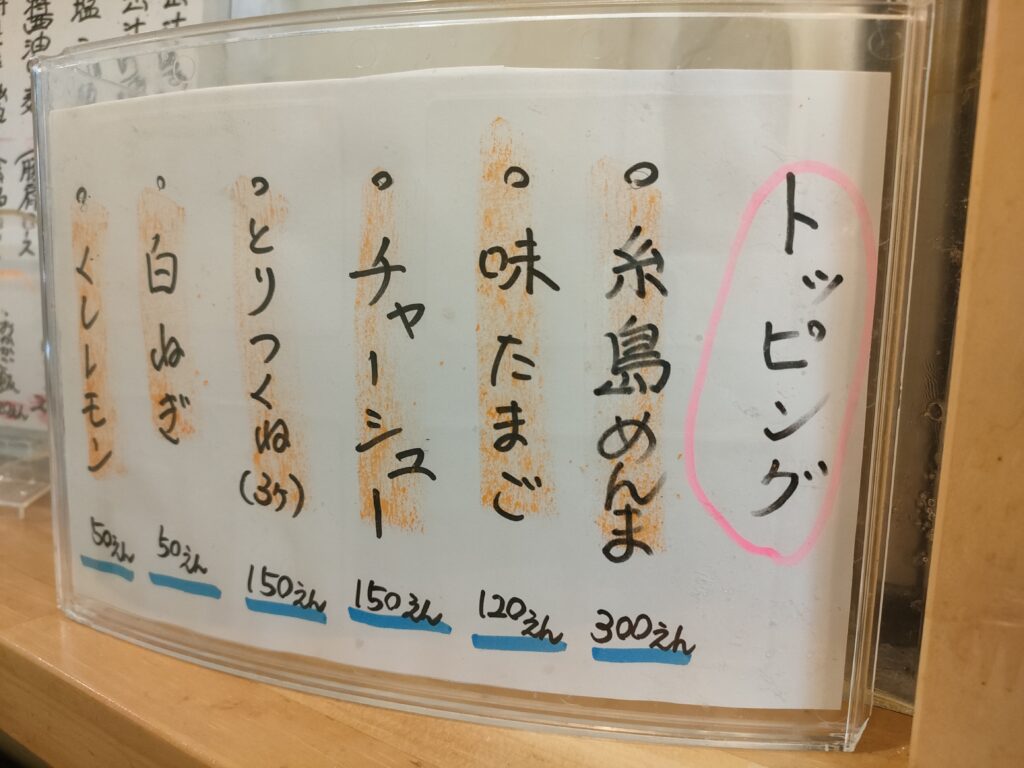 トッピング
。糸島めんま 300えん
。味たまご 120えん
。チャーシュー 150えん
。とりつくね(3ヶ) 150えん
。白ねぎ 50えん
。くしレモン 50えん
醤油
塩